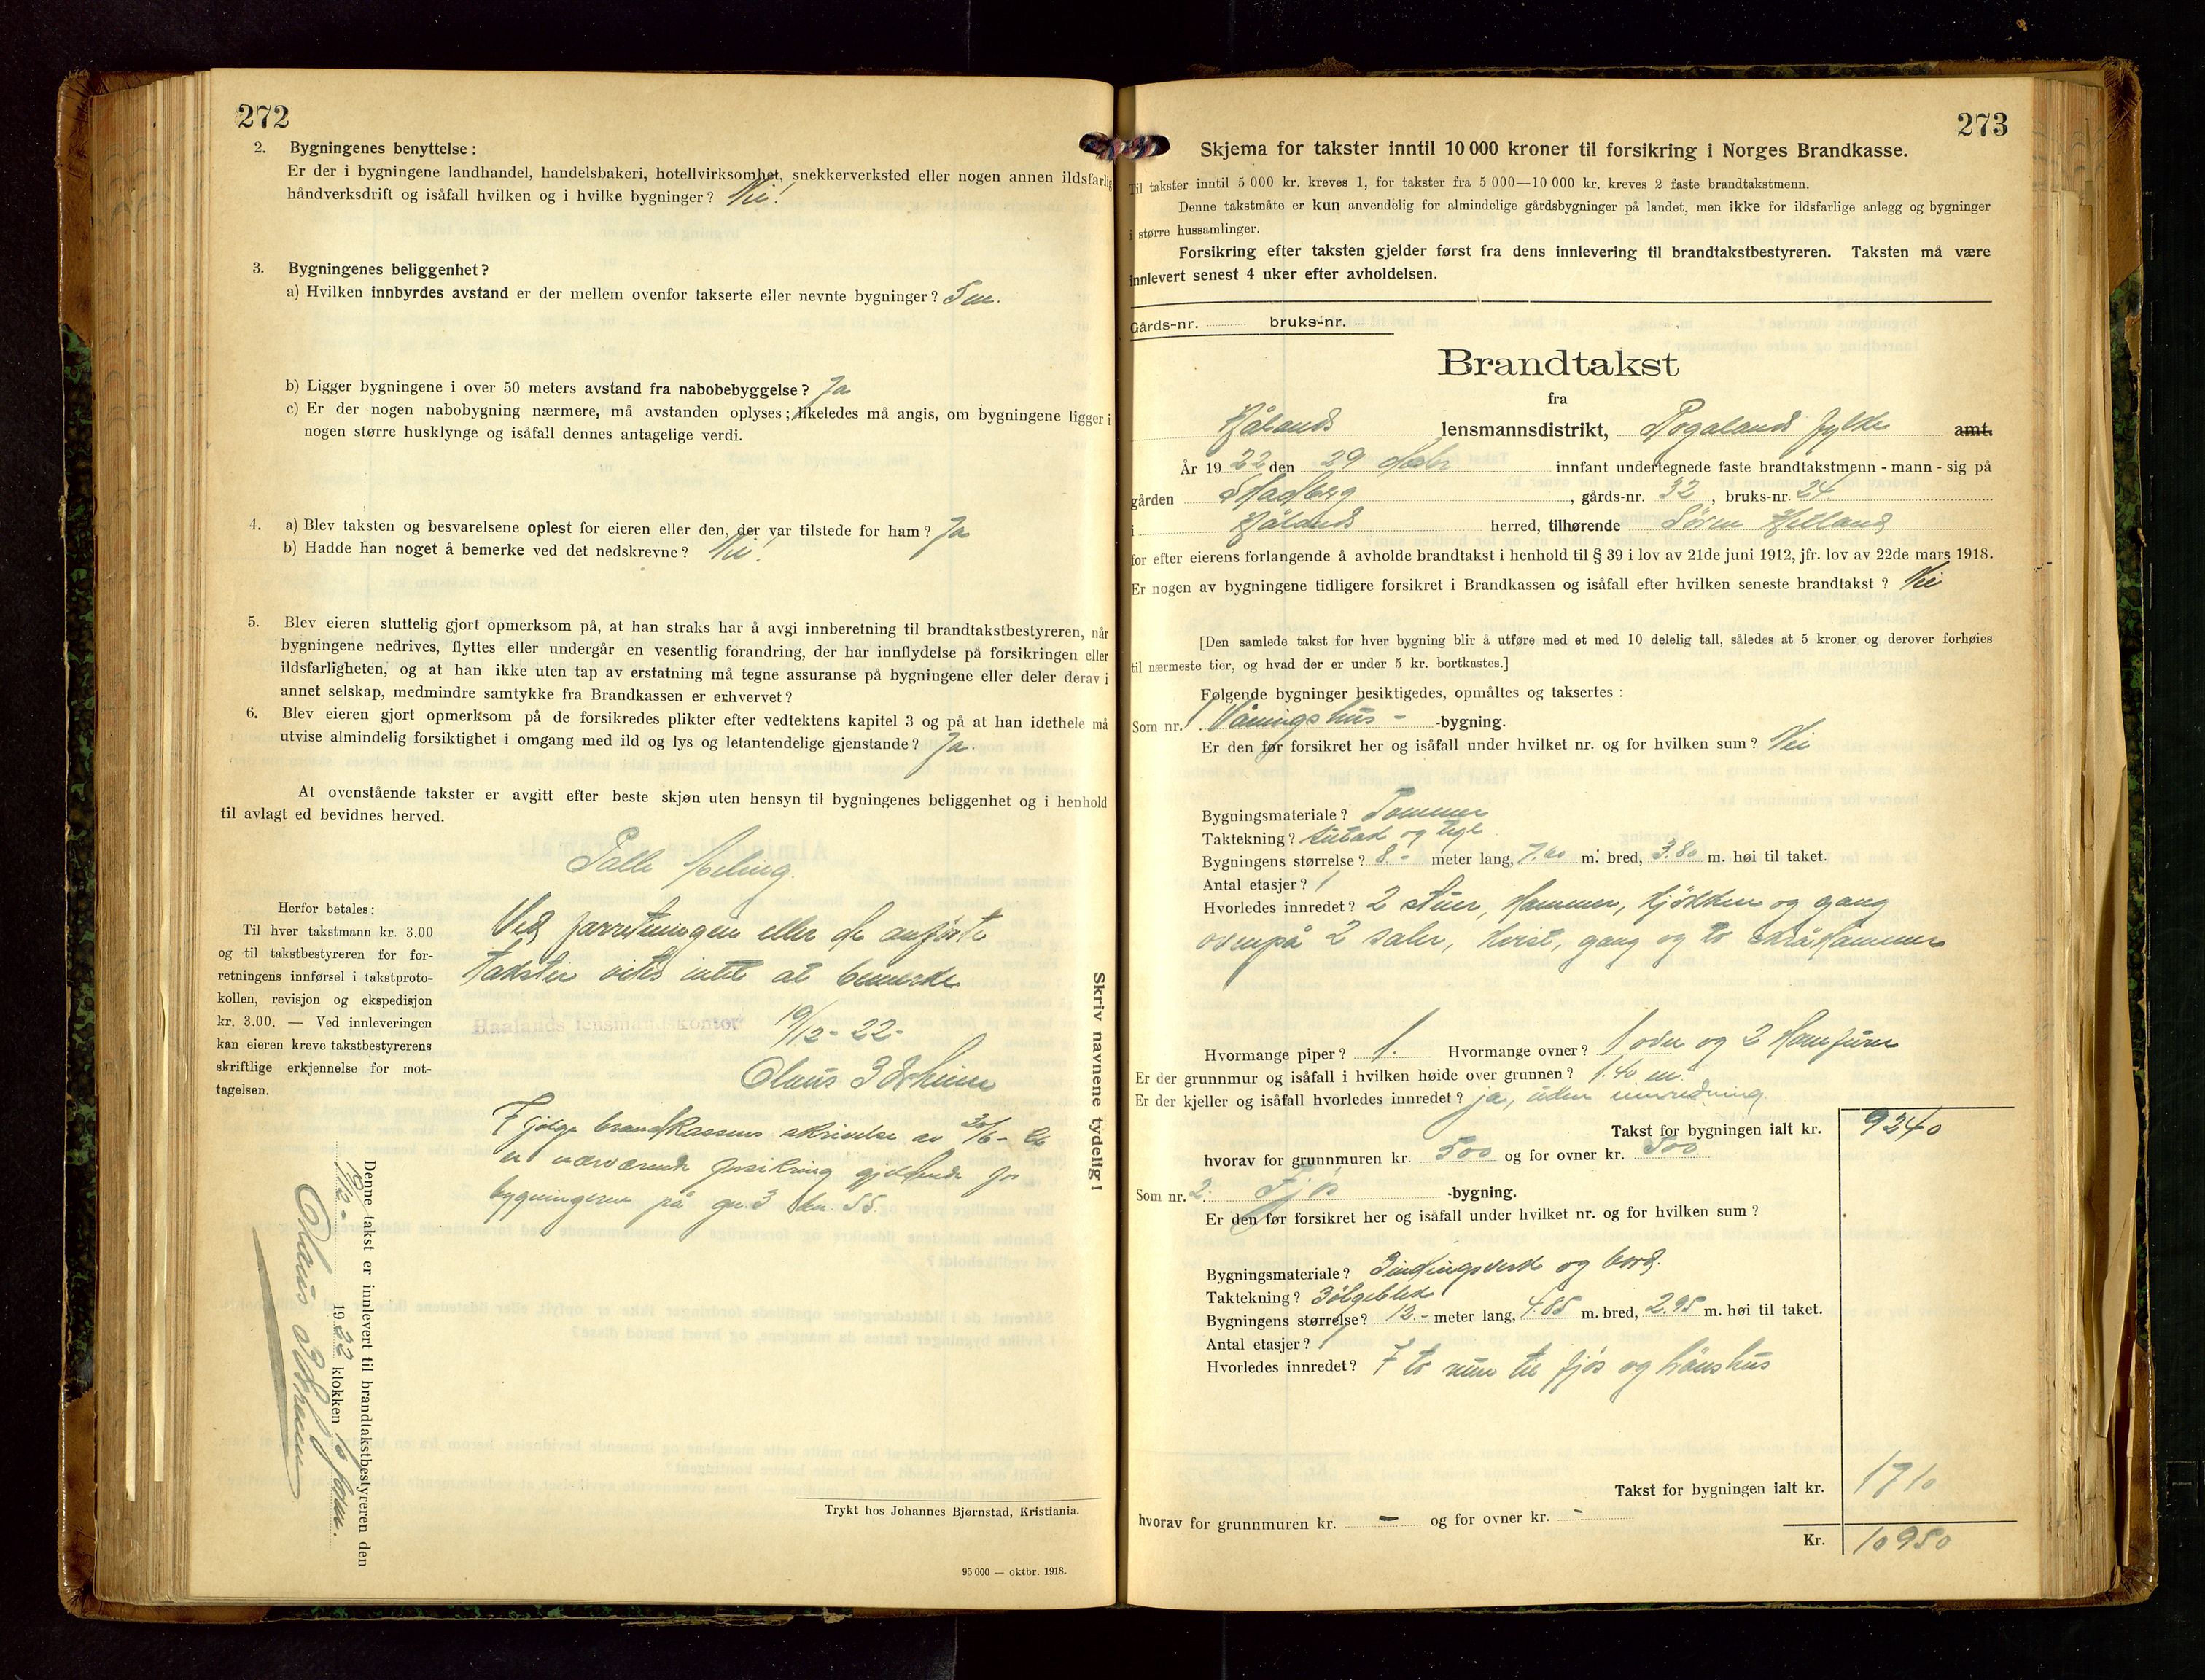 272
2. Bygningenes benyttelse :
Er der i bygningene landhandel, handelsbakeri, hotellvirksomhet, snekkerverksted eller nogen annen ildsfarlig
håndverksdrift og isåfall hvilken og i hvilke bygninger? Nei!
3. Bygningenes beliggenhet?
a) Hvilken innbyrdes avstand er der mellem ovenfor takserte eller nevnte bygninger? 5 m.
b) Ligger bygningene i over 50 meters avstand fra nabobebyggelse? Ja
c) Er der nogen nabobygning nærmere, må avstanden oplyses; likeledes må angis, om bygningene ligger i
nogen større husklynge og isåfall dennes antagelige verdi.
4. a) Blev taksten og besvarelsene oplest for eieren eller den, der var tilstede for ham? Ja
b) Hadde han noget å bemerke ved det nedskrevne? Nei!
5. Blev eieren sluttelig gjort opmerksom på, at han straks har å avgi innberetning til brandtakstbestyreren, når
bygningene nedrives, flyttes eller undergår en vesentlig forandring, der har innflydelse på forsikringen eller
ildsfarligheten, og at han ikke uten tap av erstatning må tegne assuranse på bygningene eller deler derav i
annet selskap, medmindre samtykke fra Brandkassen er erhvervet?
6. Blev eieren gjort opmerksom på de forsikredes plikter efter vedtektens kapitel 3 og på at han idethele må
utvise almindelig forsiktighet i omgang med ild og lys og letantendelige gjenstande? Ja.
At ovenstående takster er avgitt efter beste skjøn uten hensyn til bygningenes beliggenhet og i henhold
til avlagt ed bevidnes herved.
Palle Meling.
Herfor betales:
Til hver takstmann kr. 3.00
og til takstbestyreren for for-
retningens innførsel i takstproto-
kollen, revisjon og ekspedisjon
kr. 3.00. — Ved innleveringen
kan eieren kreve takstbestyrerens
skriftlige erkjennelse for mot-
tagelsen.
Ved forretningen eller de anførte
takster vites intet at bemerke
Haalands lensmannskontor 19/12-22-
Olaus
Ifølge brandkassens skrivelse av
er nærværende forsikring gjeldende for
bygningerne på gn. 3 bn. 55.
Skriv navnene tydelig!
Denne takst er innlevert til brandtakstbestyreren den
19/12- 1922 klokken 10 form.
Olaus
Trykt hos Johannes Bjørnstad, Kristiania.
95 000 — oktbr. 1918.
273
Skjema for takster inntil 10 000 kroner til forsikring i Norges Brandkasse.
Til takster inntil 5 000 kr. kreves 1, for takster fra 5 000—10 000 kr. kreves 2 faste brandtakstmenn.
Denne takstmåte er kun anvendelig for almindelige gårdsbygninger på landet, men ikke for ildsfarlige anlegg og bygninger
i større hussamlinger.
Forsikring efter taksten gjelder først fra dens innlevering til brandtakstbestyreren. Taksten må være
innlevert senest 4 uker efter avholdelsen.
Gårds-nr. bruks-nr.
Brandtakst
fra
Hålands lensmannsdistrikt, Rogalands fylke amt.
År 1922 den 29 innfant undertegnede faste brandtakstmenn - mann - sig på
gården Stadberg, gårds-nr. 32, bruks-nr. 24
i Hålands herred, tilhørende Søren Helland
for efter eierens forlangende å avholde brandtakst i henhold til § 39 i lov av 21de juni 1912, jfr. lov av 22de mars 1918.
Er nogen av bygningene tidligere forsikret i Brandkassen og isåfall efter hvilken seneste brandtakst ? Nei
[Den samlede takst for hver bygning blir å utføre med et med 10 delelig tall, således at 5 kroner og derover forhøies
til nærmeste tier, og hvad der er under 5 kr. bortkastes.]
Følgende bygninger besiktigedes, opmåltes og taksertes :
Som nr. 1 Våningshus - -bygning.
Er den før forsikret her og isåfall under hvilket nr. og for hvilken sum? Nei
Bygningsmateriale? Tømmer
Taktekning? og tegl
Bygningens størrelse? 8.- meter lang, 7.60 m. bred, 3.80 m. høi til taket.
Antal etasjer? 1
Hvorledes innredet? 2 stuer, kammer, kjøkken og gang
ovenpå 2 saler, kvist, gang og to skråkammer
Hvormange piper? 1. Hvormange ovner? 1 ovn og 2 komfurer
Er der grunnmur og isåfall i hvilken høide over grunnen? 1.40 m.
Er der kjeller og isåfall hvorledes innredet? ja, uten innredning.
Takst for bygningen ialt kr. 9240
hvorav for grunnmuren kr. 500 og for ovner kr. 500
Som nr. 2. Fjøs -bygning.
Er den før forsikret her og isåfall under hvilket nr. og for hvilken sum ?
Bygningsmateriale? Bindingsverk og bord.
Taktekning? Bølgeblik
Bygningens størrelse? 12.- meter lang, 4.85 m. bred, 2.95 m. høi til taket.
Antal etasjer? 1
Hvorledes innredet? I to rum til fjøs og hønshus
Takst for bygningen ialt kr. 1710
hvorav for grunnmuren kr. - og for ovner kr. -
Kr. 10950